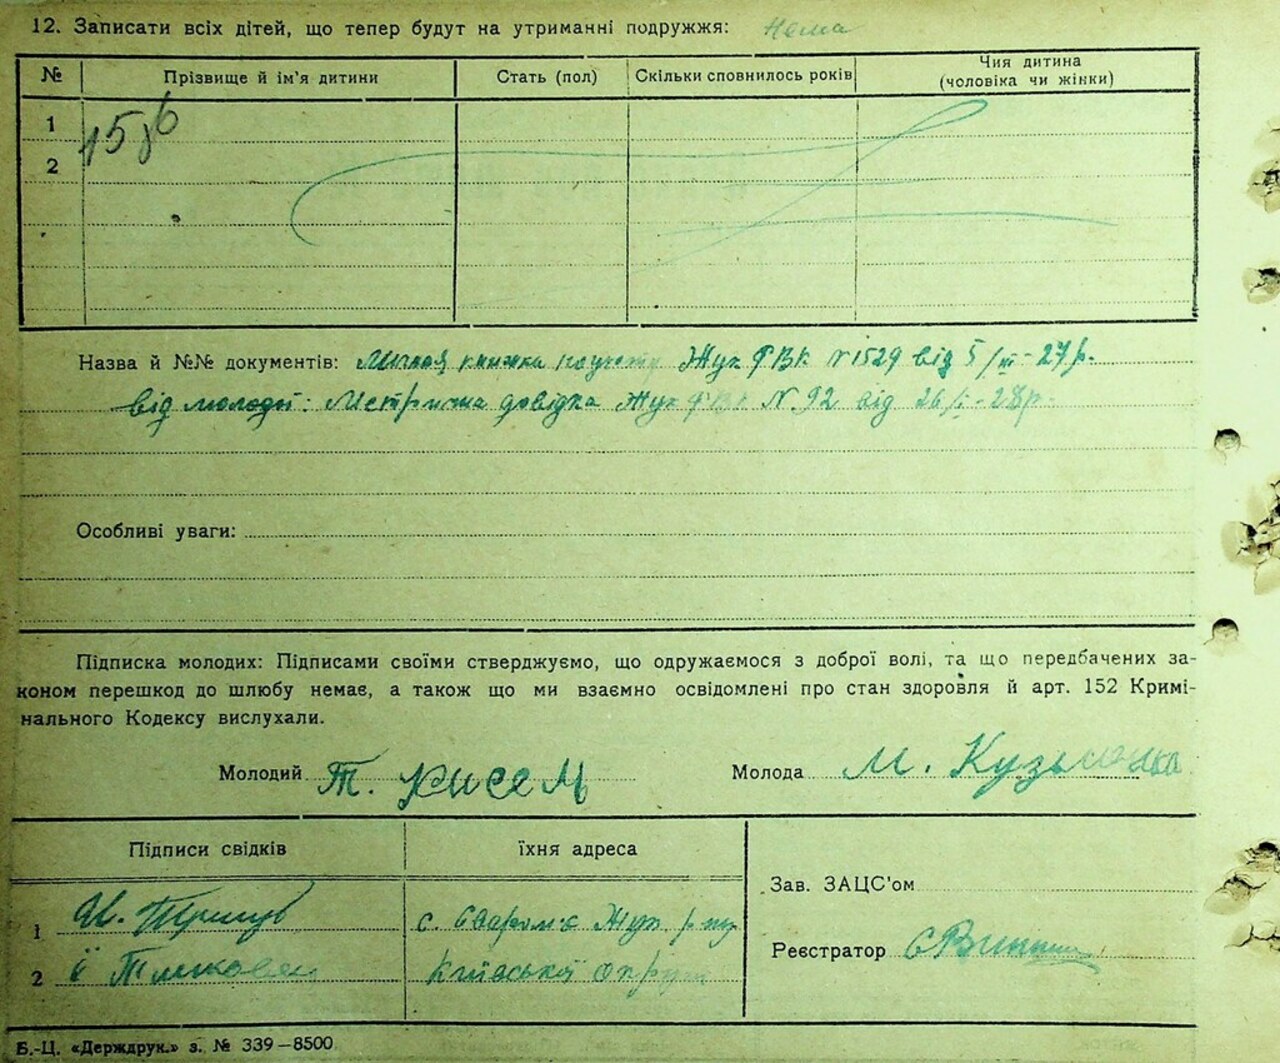 12. Записати всіх дітей, що тепер будут на утриманні подружжя: Нема
№ Прізвище й ім'я дитини Стать (пол) Скільки сповнилось років Чия дитина (чоловіка чи жінки)
1
2
Назва й №№ документів: книжка Жук ФВК N 1529 від 5/III-27р.
від молодої: Метрична довідка Жук ФВК N. 92 від 26/I-28р.
Особливі уваги:
Підписка молодих: Підписами своїми стверджуємо, що одружаємося з доброї волі, та що передбачених за-
коном перешкод до шлюбу немає, а також що ми взаємно освідомлені про стан здоровля й арт. 152 Кримі-
нального Кодексу вислухали.
Молодий Т. Молода М. Кузьменка
Підписи свідків їхня адреса
Зав. ЗАЦС'ом
1 с. Жук р-ну
Реєстратор
2 Київської
Б.-Ц. «Держдрук.» з. № 339—8500